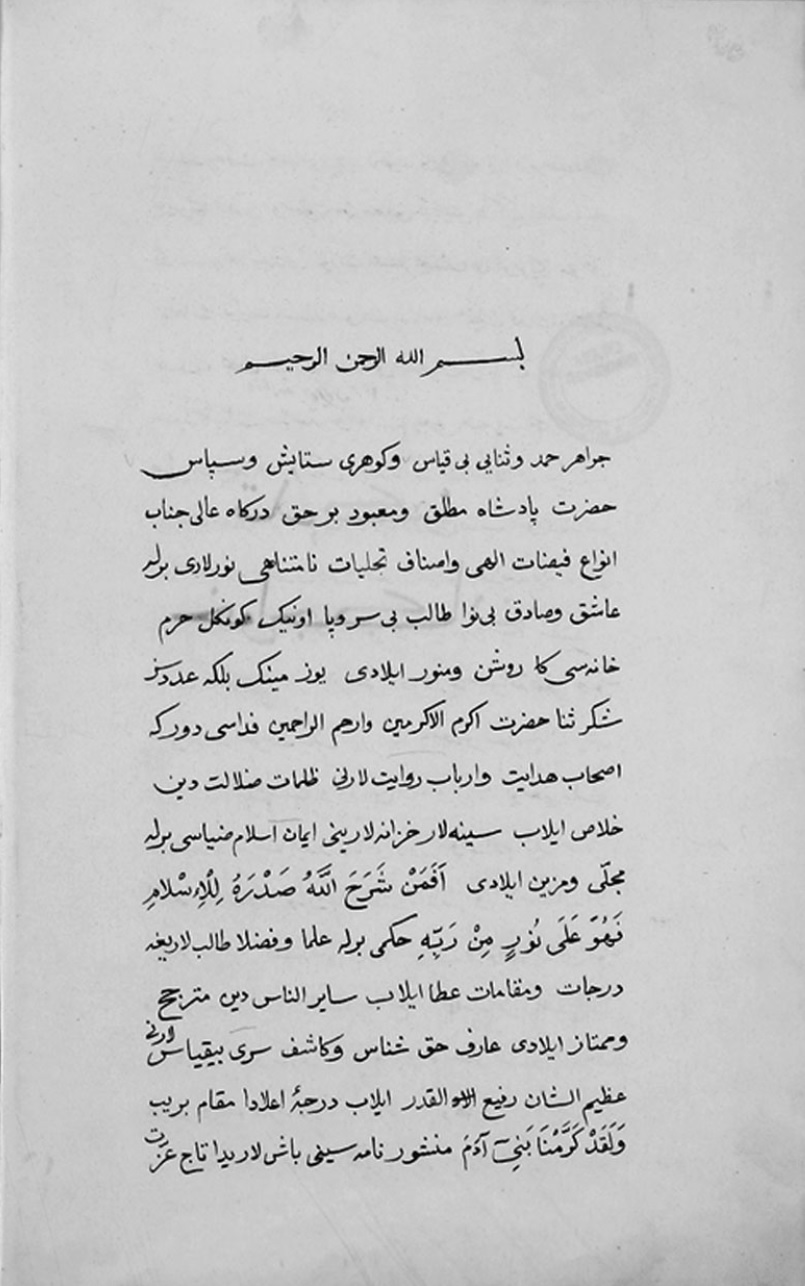 بسم الله الرحمن الرحیم
جواهر حمد و ثنایی بی قیاس وکوهری ستایش وسپاس
حضرت پادشاه مطلق ومعبود برحق درکاه عالی جناب
انواع فیضات الهی واصناف تجلیات نامتناهی نورلاری برله
عاشق وصادق بی نوا طالب بی سر وپا اونیک کونکل حرم
خانه سی کا روشن ومنور ایلادی یوز مینک بلکه عددسز
شکر ثنا حضرت اکرم الاکرمین وارحم الراحمین فداسی دورکه
اصحاب هدایت وارباب روایت لارنی ظلمات ضلالت دین
خلاص ایلاب سینه لار خزانه لارینی ایمان اسلام ضیاسی برله
مجلّی ومزین ایلادی اَفَمَنْ شَرَحَ اللَّهُ صَدْرَهُ لِلْاِسْلَامِ
فَهُوَ عَلَى نُورٍ مِنْ رَبِّهِ حکمی برله علما وفضلا طالب لاریغه
درجات ومقامات عطا ایلاب سایر الناس دین مترجح
وممتاز ایلادی عارف حق شناس وکاشف سری بیقیاس لارنی
عظیم الشان رفیع القدر ایلاب درجهٔ اعلادا مقام بریب
وَلَقَدْ كَرَّمْنَا بَنِيٓ آدَمَ منشور نامه سینی باش لاریدا تاج عزت